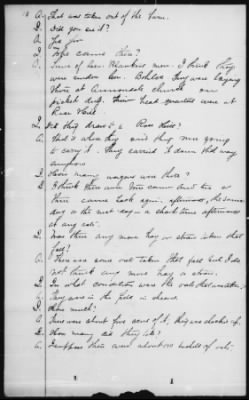 A. That was taken out of the barn.
Q. Did you see it?
A. Yes Sir
Q. Who came there?
A. Some of Gen. Blenkers men. I think they
were under Gen. Bohlen They were laying
there at Annandale church on
picket duty. Their head quarters were at
Rose Hill.
Q. Did they draw it to Rose Hill?
A. That is where they said they were going
to carry it. They carried it down that way
anyhow
Q. How many wagons was there?
A. I think there were two came and two or
three came back again afterwards, the same
day or the next day or a short time afterwards
at any rate.
Q. Was there any more hay or straw taken that
fall?
A. There was some oats taken that fall but I do
not think any more hay or straw.
Q. In what condition was the oats that was taken;
A. They was in the field in sheaves
Q. How much?
A. There were about five acres of it, they was shocked up.
Q. How many did they take?
A. I suppose there were about 100 bushels of oats.